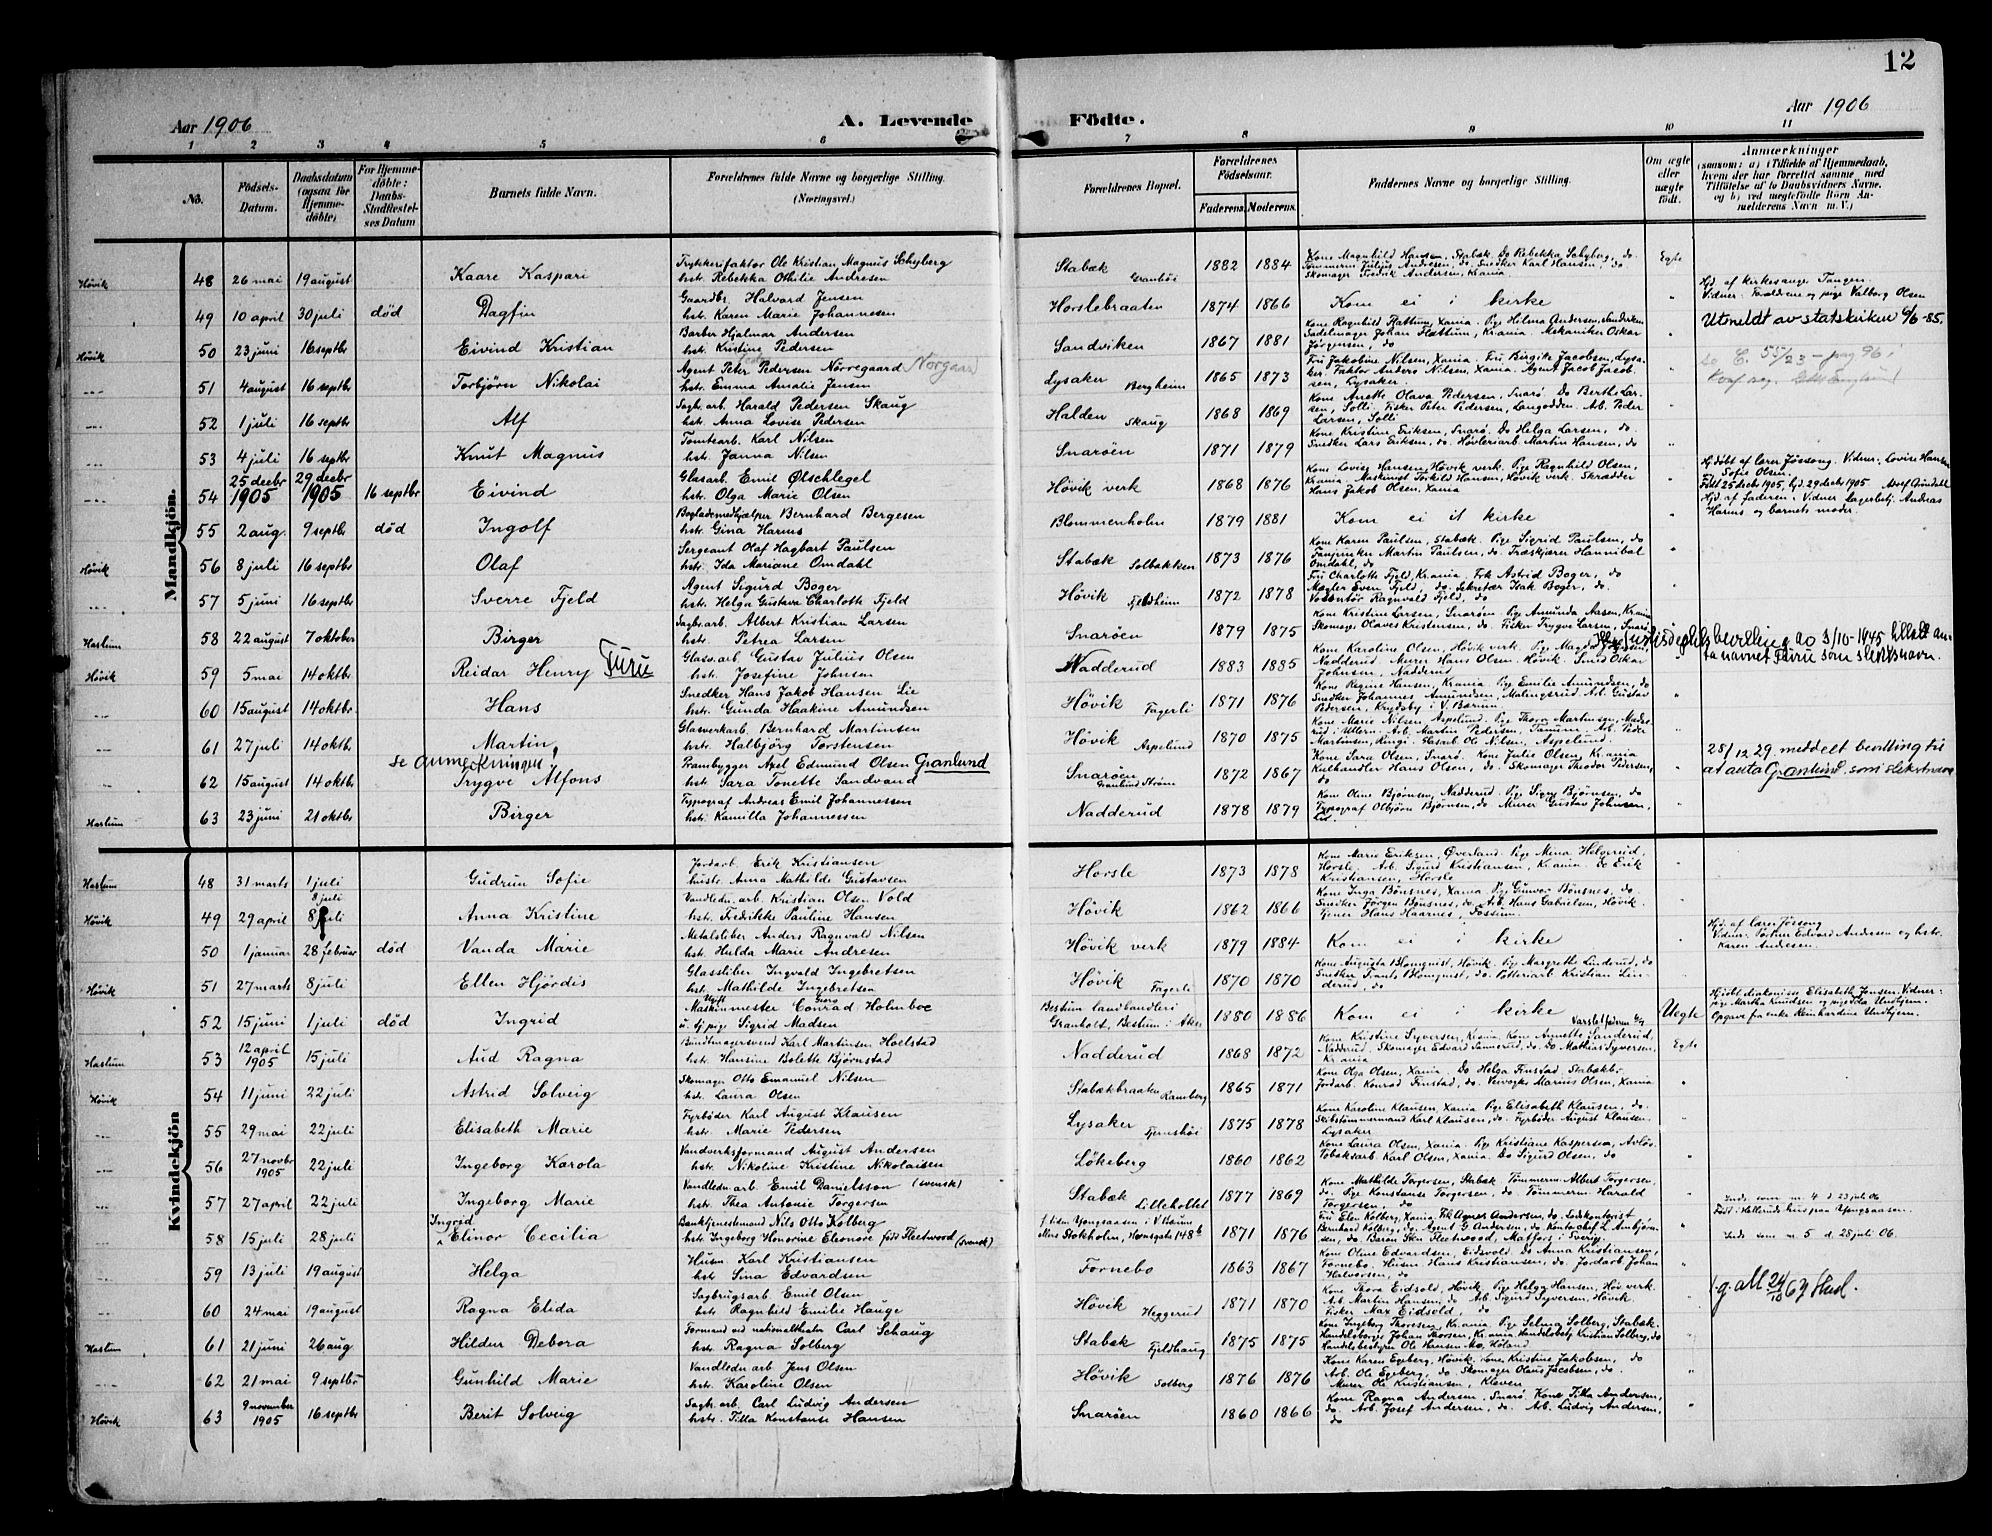 12
Aar 1906
A. Levende
Födte.
Aar 1906
1 2 3 4 5 6 7 8 9 10 11
No.
Födsels-Datum.
Daabsdatum (ogsaa for Hjemmedöbte)
For Hjemmedöbte: Daabs-Stadfæstelses Datum
Barnets fulde Navn.
Forældrenes fulde Navne og borgerlige Stilling. (Næringsvei.)
Forældrenes Bopæl.
Forældrenes Födselsaar.
Faderens. Moderens.
Faddernes Navne og borgerlige Stilling.
Om ægte eller uægte födt.
Anmærkninger
(saasom: a) i Tilfælde af Hjemmedaab, hvem der har forrettet samme, med Tilföielse af to Daabsvidners Navne, og b) ved uægtefödte Börn Anmelderens Navn m. V.)
Mandkjön.
Høvik 48 26 mai 19 august Kaare Kaspari
Trykkerifaktor Ole Kristian Magnus Schyberg
hstr. Rebekka Othilie Andresen
Stabæk Granbøi 1882 1884
Kone Magnhild Hansen, Stabæk. Do Rebekka Schyberg, do.
Tømmerm. Julius Andresen, do. Snedker Karl Hansen, do
Skomager Fredrik Andersen, Krania
Egte
49 10 april 30 juli død Dagfin
Gaardbr. Halvard Jensen
hstr. Karen Marie Johannessen
Horslebraaten 1874 1866 Kom ei i kirke
Hjd. af kirkesanger Tangen
Vidner: Forældrene og pige Valborg Olsen
Utmeldt av statskirken 6/6-85.
Høvik 50 23 juni 16 septbr Eivind Kristian
Barber Hjalmar Andersen
hstr. Kristine Pedersen
Sandviken 1867 1881
Kone Ragnhild Flattum, Xania. Pige Helma Andersen, Sandviken
Sadelmager Johan Flattum, Krania. Mekaniker Oskar
Jørgensen, do
51 4 august 16 septbr Torbjörn Nikolai
Agent Peter Pedersen Nörregaard Norgaard
hstr. Emma Amalie Jensen
Lysaker Bergheim 1865 1873
Fru Jakobine Nilsen, Xania. Fru Birgitte Jacobsen, Lysaker. Faktor Anders Nilsen, Xania. Agent Jacob Jacobsen, Lysaker.
52 1 juli 16 septbr Alf
Sagbr. arb. Harald Pedersen Skaug
hstr. Anna Lovise Pedersen
Halden Skaug 1868 1869
Kone Anette Olava Pedersen, Snarø. Do Berthe Larsen, Solli. Fisker Peter Pedersen, Langodden. Arb. Peder
Larsen, Solli
53 4 juli 16 septbr Knut Magnus
Tomtearb. Karl Nilsen
hstr. Janna Nilsen
Snarøen 1871 1879
Kone Kristine Eriksen, Snarø. Do Helga Larsen, do.
Snedker Lars Eriksen, do. Høvleriarb. Martin Hansen, do
54 25 decbr 1905 29 decbr 1905 16 septbr Eivind
Glasarb. Emil Ølschlegel
hstr. Olga Marie Olsen
Høvik verk 1868 1876
Kone Lovise Hansen, Høvik verk. Pige Ragnhild Olsen,
Krania. Maskinist Torkild Hansen, Høvik verk. Skrædder
Hans Jakob Olsen, Xania
Hjdøbt af lærer Jøssong. Vidner: Lovise Hansen
Sofie Olsen.
Født 25 decbr 1905, hjd. 29 decbr 1905
55 2 aug. 9 septbr død Ingolf
Boglademedhjælper Bernhard Bergesen
hstr. Gina Harms
Blommenholm 1879 1881 Kom ei i kirke
Hjd. af faderen. Vidner Lagerbetj. Andreas
Harms og barnets moder.
Høvik 56 8 juli 16 septbr Olaf
Sergeant Olaf Hagbart Paulsen
hstr. Ida Mariane Omdahl
Stabæk Solbakken 1873 1876
Kone Karen Paulsen, Stabæk. Pige Sigrid Paulsen, do
Fanejunker Martin Paulsen, do. Træskjærer Hannibal
Omdahl, do
57 5 juni 16 septbr Sverre Fjeld
Agent Sigurd Boger
hstr. Helga Gustava Charlotte Fjeld
Høvik Fjeldheim 1872 1878
Fru Charlotte Fjeld, Krania. Frk Astrid Boger, do
Mægler Even Fjeld, do. Sekretær Isak Boger, do.
Volontør Ragnvald Fjeld, do
Haslum 58 22 august 7 oktober Birger
Sagbr. arb. Albert Kristian Larsen
hstr. Petrea Larsen
Snarøen 1879 1875
Kone Kristine Larsen, Snarøen. Pige Amunda Aasen, Krania
Skomager Olaves Kristensen, do. Fisker Trygve Larsen, Snarø
Høvik 59 5 mai 14 oktbr Reidar Henry Furu
Glasv. arb. Gustav Julius Olsen
hstr. Josefine Johnsen
Nadderud 1883 1885
Kone Karoline Olsen, Høvik verk. Pige Magda
Nadderud. Murer Hans Olsen, Høvik. Smed Oskar
Johnsen, Nadderud
justisdeptsbevilling av 3/10-1945 tillatt anta navnet Furu som slektsnavn.
60 15 august 14 oktbr Hans
Snedker Hans Jakob Hansen Lie
hstr. Gunda Haakine Amundsen
Høvik Fagerli 1871 1876
Kone Regine Hansen, Krania. Pige Emilie Amundsen, do
Snedker Johannes Amundsen, Malingsrud. Arb. Gustav
Pedersen, Krydsby i V. Bærum
61 27 juli 14 oktb Martin
Glasverkarb. Bernhard Martinsen
hstr. Halbjörg Torstensen
Høvik Aspelund 1870 1875
Kone Marie Nilsen, Aspelund. Pige Thora Martinsen, Madserud i Ullern. Arb. Martin Pedersen, Tammen. Arb. Peder
Martinsen, Ringi. Glasarb Ole Nilsen, Aspelund
se anmerkningen
62 15 august 14 oktbr Trygve Alfons
Prambygger Axel Edmund Olsen Granlund
hstr. Sara Tonette Sandvand
Snarøen Granlund Strøm 1872 1867
Kone Sara Olsen, Snarø. Kone Julie Olsen, Krania
Kulhandler Hans Olsen, do. Skomager Theodor Pedersen,
do
28/12 29. meddelt bevilling til
at anta Granlund som slektsnavn
Haslum 63 23 juni 21 oktbr Birger
Typograf Andreas Emil Johannessen
hstr. Kamilla Johannessen
Nadderud 1878 1879
Kone Oline Bjørnsen, Nadderud. Pige Signe Bjørnsen, do
Typograf Olbjörn Bjørnsen, do. Murer Gustav Johnsen,
Kvindekjön
Haslum 48 31 marts 1 juli Gudrun Sofie
Jordarb. Erik Kristiansen
hustr. Anna Mathilde Gustavsen
Horsle 1873 1878
Kone Marie Eriksen, Øverland. Pige Mina Helgerud,
Horsle. Arb. Sigurd Kristiansen, Krania. Do Erik
Kristiansen, Horsle
Høvik 49 29 april 8 juli Anna Kristine
Vandledn. arb. Kristian Olsen Vold
hstr. Fredikke Pauline Hansen
Høvik 1862 1866
Kone Inga Bønsnes, Xania. Pige Gunvor Bønsnes, do.
Snedker Jørgen Bønsnes, do. Arb. Hans Gabrielsen, Høvik.
Tjener Hans Haarnes, Fossum.
50 1 januar 28 februar død Vanda Marie
Metalsleber Anders Ragnvald Nilsen
hstr. Hulda Marie Andresen
Høvik verk 1879 1884 Kom ei i kirke
Hjd. af lærer Jøssong
Vidner: Edvard Andersen og hstr.
Karen Andersen.
Høvik 51 27 marts 8 juli Ellen Hjördis
Glassliber Ingvald Ingebretsen
hstr. Mathilde Ingebretsen
Høvik Fagerli 1870 1870
Kone Augusta Blomquist, Høvik. Pige Margrethe Linderud, do
Snedker Frants Blomquist, do. Potteriarb Kristian Linderud, do
52 15 juni 1 juli død Ingrid
Ugift Maskinmester Conrad Georg Holmboe
u. tj. pige Sigrid Madsen
Bestum landhandleri
Granholt, Bestum i Aker 1880 1886 Kom ei i kirke
Varslet faderen
Uegte
Hjdøbt diakonisse Elisabeth Jensen. Vidner:
pige Martha Knudsen og pige Ida Undhjem.
Opgave fra enke Reinhardine Undhjem.
Haslum 53 12 april 1905 15 juli Aud Ragna
Bundtmagersvend Karl Martinsen Hoelstad
hstr. Hansine Bolette Bjørnstad
Nadderud 1868 1872
Kone Kristine Syversen, Krania. Kone Annette Sanderud,
Nadderud. Skomager Edvard Sannerud, do. Do Mathias Syversen,
Krania
Egte
Høvik 54 11 juni 22 juli Astrid Solveig
Skomager Otto Emanuel Nilsen
hstr. Laura Olsen
Stabækbraaten Ramberg 1865 1871
Kone Olga Olsen, Xania. Do Helga Finstad Stabækbr.
Jordarb. Konrad Finstad, do. Marius Olsen, Xania
55 29 mai 22 juli Elisabeth Marie
Fyrbøder Karl August Klausen
hstr. Marie Pedersen
Lysaker Fjernshøi 1875 1878
Kone Karoline Klausen, Xania. Pige Elisabeth Klausen, do.
Skibstømmermand Karl Klausen, do. Fyrbøder August Klausen
Lysaker
56 27 novbr 1905 22 juli Ingeborg Karola
Vandverksformand August Andersen
hstr. Nikoline Kristine Nikolaisen
Lökeberg 1860 1862
Kone Laura Olsen, Xania. Pige Kristiane Kaspersen, Avløs.
Tobaksarb. Karl Olsen, Xania. Do Sigurd Olsen, do
57 27 april 22 juli Ingeborg Marie
Vandledn. arb. Emil Danielsson (svensk)
hstr. Thea Antonie Torgersen
Stabæk Lilleholtet 1877 1869
Kone Mathilde Torgersen, Stabæk. Tömmerm. Albert Torgersen,
do. Pige Konstanse Torgersen, do. Tømmerm. Harald
Torgersen, do
Inds som nr. 4 d. 23 juli 06
58 15 juli 28 juli Ingrid Elinor Cecilia
Banktjenestemand Nils Otto Kolberg
hstr. Ingeborg Honorine Eleonore född Fleetwood (svensk)
f. tiden Yongsaasen i V. Bærum
Ellers Stokholm, Hornsgata 148b 1871 1876
Fru Elen Kolberg, Xania. Frk Agnes Andersen, do. Bankkontorist
Bernhard Kolberg, do. Agent G Andersen, do. Kontorchef L. Ambjørnsen, do. Baron Sten Fleetwood, Matfors i Sverig.
Født i Hellerud's hus paa Yongsaasen.
Inds som nr. 5 d. 28 juli 06.
59 13 juli 19 august Helga
Husm. Karl Kristiansen
hstr. Lina Edvardsen
Fornebo 1863 1867
Kone Oline Edvardsen, Eidsvold. Do Anna Kristiansen,
Fornebo. Husm Hans Kristiansen, do. Jordarb. Johan
Halvorsen, do
60 24 mai 19 august Ragna Elida
Sagbrugsarb. Emil Olsen
hstr. Ragnhild Emilie Hauge
Høvik Heggerud 1871 1870
Kone Thora Eidsold, Høvik. Pige Helga Hansen, Høv. verk.
Arb. Martin Hansen, do. Arb. Sigurd Syversen, Høvik.
Fisker Max Eidsold, do
Haslum 61 21 juni 26 aug Hildur Debora
Formand ved nationaltheater Carl Schaug
hstr. Ragna Solberg
Stabæk Fjeldhaug 1875 1875
Kone Ingeborg Thoresen, Krania. Pige Selma Solberg, Stabæk.
Handelsborger Johan Thorsen, Krania. Handelsbetj. Kristian Solberg, do
Handelsbestyrer Ole Hansen Mo, Høland
62 21 mai 9 septbr Gunhild Marie
Vandledn arb. Jens Olsen
hstr. Karoline Olsen
Høvik Solberg 1876 1876
Kone Karen Egeberg, Høvik. Kone Kristine Jakobsen, do
Arb. Ole Egeberg, do. Skomager Olaus Jacobsen, do.
Murer Ole Kristiansen, Kleven
Høvik 63 9 november 1905 16 septbr Berit Solveig
Sagbr. arb. Carl Ludvig Andersen
hstr. Tilla Konstanse Hansen
Snarøen 1860 1866
Kone Ragna Andersen, Snarø. Kone Tilla Andersen,
do. Arb. Josef Andersen, do. Arb. Ludvig Andersen,
do